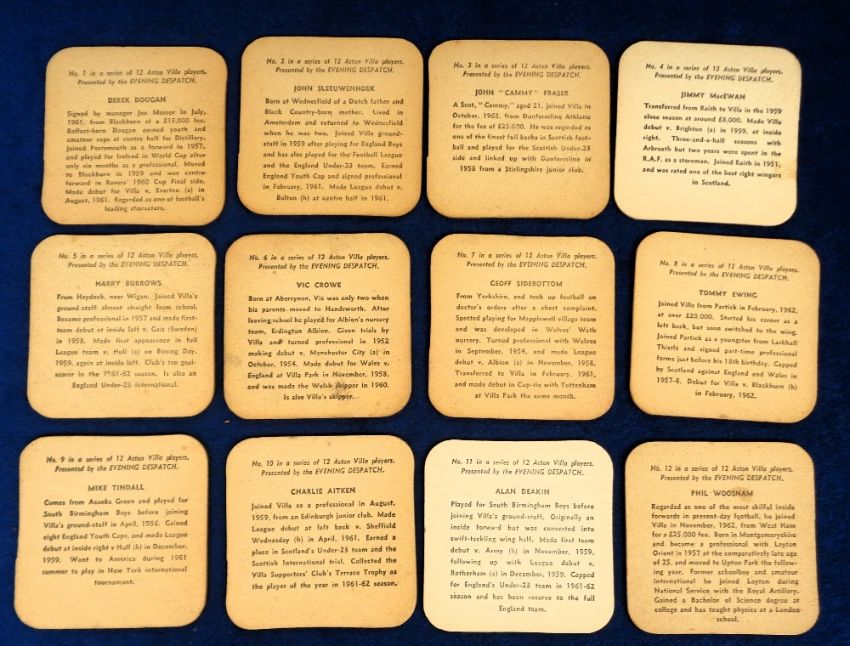 No. 1 in a series of 12 Aston Villa players.
Presented by the EVENING DESPATCH.
DEREK DOUGAN
Signed by manager Joe Mercer in July,
1961, from Blackburn at a £15,000 fee.
Belfast-born Dougan earned youth and
amateur caps at centre half for Distillery.
Joined Portsmouth as a forward in 1957,
and played for Ireland in World Cup after
only six months as a professional. Moved
to Blackburn in 1959 and was centre
forward in Rovers' 1960 Cup Final side.
Made debut for Villa v. Everton (a) in
August, 1961. Regarded as one of football's
leading characters.
No. 2 in a series of 12 Aston Villa players.
Presented by the EVENING DESPATCH.
JOHN SLEEUWENHOEK
Born at Wednesfield of a Dutch father and
Black Country-born mother. Lived in
Amsterdam and returned to Wednesfield
when he was two. Joined Villa ground-
staff in 1959 after playing for England Boys
and has also played for the Football League
and the England Under-23 team. Earned
England Youth Cap and signed professional
in February, 1961. Made League debut v.
Bolton (h) at centre half in 1961.
No. 3 in a series of 12 Aston Villa players.
Presented by the EVENING DESPATCH.
JOHN "CAMMY" FRASER
A Scot, "Cammy," aged 21, joined Villa in
October, 1962, from Dunfermline Athletic
for the fee of £25,000. He was regarded as
one of the finest full backs in Scottish foot-
ball and played for the Scottish Under-23
side and linked up with Dunfermline in
1958 from a Stirlingshire junior club.
No. 4 in a series of 12 Aston Villa players.
Presented by the EVENING DESPATCH.
JIMMY MacEWAN
Transferred from Raith to Villa in the 1959
close season at around £8,000. Made Villa
debut v. Brighton (a) in 1959, at inside
right. Three-and-a-half seasons with
Arbroath but two years were spent in the
R.A.F. as a storeman. Joined Raith in 1951,
and was rated one of the best right wingers
in Scotland.
No. 5 in a series of 12 Aston Villa players.
Presented by the EVENING DESPATCH.
HARRY BURROWS
From Haydock, near Wigan. Joined Villa's
ground-staff almost straight from school.
Became professional in 1957 and made first-
team debut at inside left v. Gais (Sweden)
in 1958. Made first appearance in full
League team v. Hull (a) on Boxing Day,
1959, again at inside left. Club's top goal-
scorer in the 1961-62 season. Is also an
England Under-23 international.
No. 6 in a series of 12 Aston Villa players.
Presented by the EVENING DESPATCH.
VIC CROWE
Born at Abercynon, Vic was only two when
his parents moved to Handsworth. After
leaving school he played for Albion's nursery
team, Erdington Albion. Given trials by
Villa and turned professional in 1952
making debut v. Manchester City (a) in
October, 1954. Made debut for Wales v.
England at Villa Park in November, 1958,
and was made the Welsh skipper in 1960.
Is also Villa's skipper.
No. 7 in a series of 12 Aston Villa players.
Presented by the EVENING DESPATCH.
GEOFF SIDEBOTTOM
From Yorkshire, and took up football on
doctor's orders after a chest complaint.
Spotted playing for Mapplewell village team
and was developed in Wolves' Wath
nursery. Turned professional with Wolves
in September, 1954, and made League
debut v. Albion (a) in November, 1958.
Transferred to Villa in February, 1961,
and made debut in Cup-tie with Tottenham
at Villa Park the same month.
No. 8 in a series of 12 Aston Villa players.
Presented by the EVENING DESPATCH.
TOMMY EWING
Joined Villa from Partick in February, 1962,
at over £20,000. Started his career as a
left back, but soon switched to the wing.
Joined Partick as a youngster from Larkhall
Thistle and signed part-time professional
forms just before his 18th birthday. Capped
by Scotland against England and Wales in
1957-8. Debut for Villa v. Blackburn (h)
in February, 1962.
No. 9 in a series of 12 Aston Villa players.
Presented by the EVENING DESPATCH.
MIKE TINDALL
Comes from Acocks Green and played for
South Birmingham Boys before joining
Villa's ground-staff in April, 1956. Gained
eight England Youth Caps, and made League
debut at inside right v Hull (h) in December,
1959. Went to America during 1961
summer to play in New York international
tournament.
No. 10 in a series of 12 Aston Villa players.
Presented by the EVENING DESPATCH.
CHARLIE AITKEN
Joined Villa as a professional in August,
1959, from an Edinburgh junior club. Made
League debut at left back v. Sheffield
Wednesday (h) in April, 1961. Earned a
place in Scotland's Under-23 team and the
Scottish International trial. Collected the
Villa Supporters' Club's Terrace Trophy as
the player of the year in 1961-62 season.
No. 11 in a series of 12 Aston Villa players.
Presented by the EVENING DESPATCH.
ALAN DEAKIN
Played for South Birmingham Boys before
joining Villa's ground-staff. Originally an
inside forward but was converted into
swift-tackling wing half. Made first team
debut v. Army (h) in November, 1959,
following up with League debut v.
Rotherham (a) in December, 1959. Capped
for England's Under-23 team in 1961-62
season and has been reserve to the full
England team.
No. 12 in a series of 12 Aston Villa players.
Presented by the EVENING DESPATCH.
PHIL WOOSNAM
Regarded as one of the most skilful inside
forwards in present-day football, he joined
Villa in November, 1962, from West Ham
for a £25,000 fee. Born in Montgomeryshire
and became a professional with Leyton
Orient in 1957 at the comparatively late age
of 25, and moved to Upton Park the follow-
ing year. Former schoolboy and amateur
international he joined Leyton during
National Service with the Royal Artillery.
Gained a Bachelor of Science degree at
college and has taught physics at a London
school.